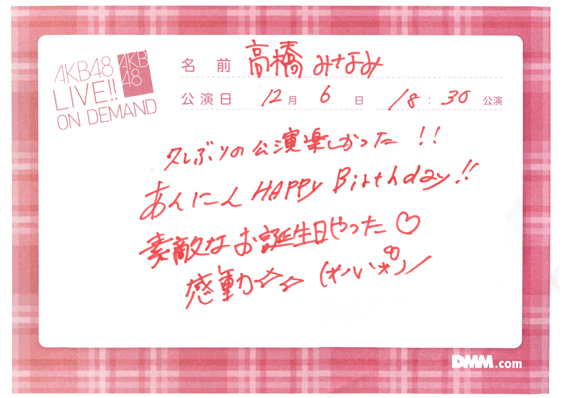 AKB48
LIVE!!
ON DEMAND
AKB
48
名前 高橋みなみ
公演日 12月6日 18:30公演
久しぶりの公演楽しかった!!
あんにん HAPPY Birthday!!
素敵なお誕生日やった♡
感動☆☆
DMM.com